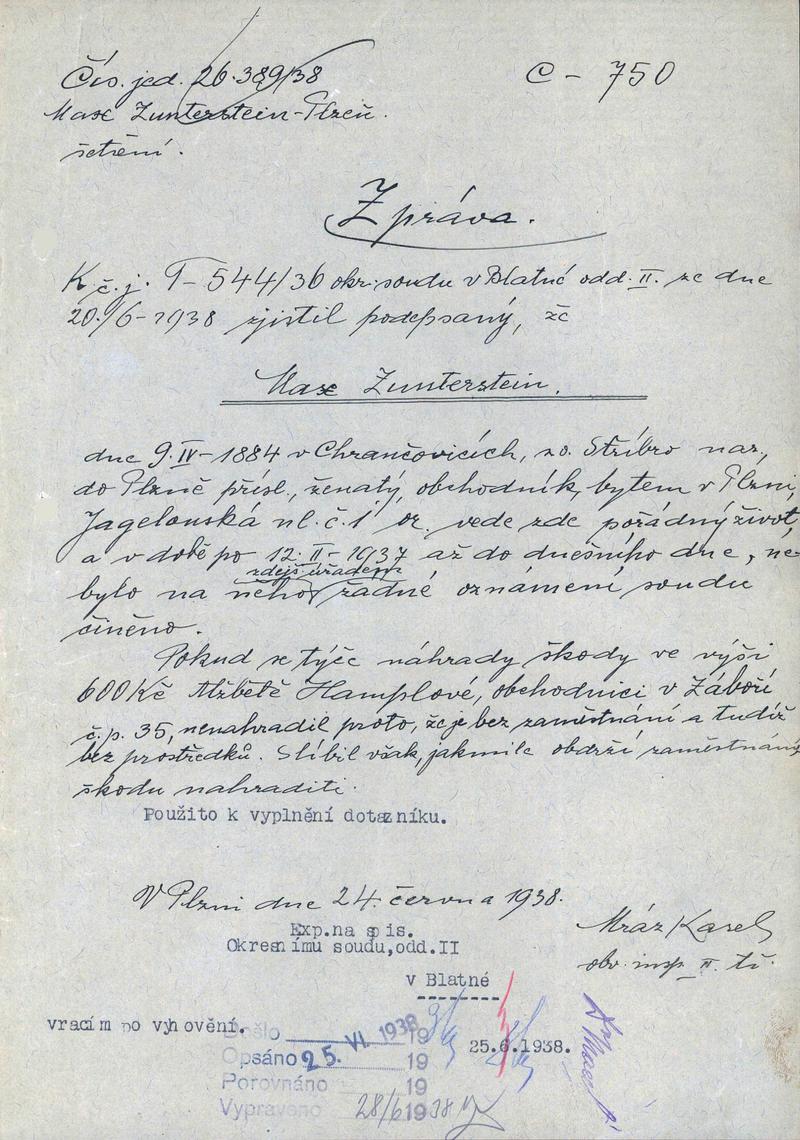 Čís. jed. 26.389/38
C - 750
Max Zunterstein - Plzeň.
šetření.
Zpráva.
K č.j. T-544/36 okr. soudu v Blatné odd. II. ze dne
20./6-1938 zjistil podepsaný, že
Max Zunterstein.
dne 9.IV-1884 v Chrančovicích, so. Stříbro nar.,
do Plzně přísl., ženatý, obchodník, bytem v Plzni,
Jagelonská ul. č. 1 or. vede zde pořádný život,
a v době po 12.II-1937 až do dnešního dne, ne-
zdejš. úřadem
bylo na něho žádné oznámení soudu
činěno.
Pokud se týče náhrady škody ve výši
600 Kč Alžbětě Hamplové, obchodnici v Záboří
č.p. 35, nenahradil proto, že je bez zaměstnání a tudíž
bez prostředků. Slíbil však, jakmile obdrží zaměstnání
škodu nahraditi.
Použito k vyplnění dotazníku.
V Plzni dne 24. června 1938.
Mráz Karel
obv. insp. II. tř.
Exp.na spis.
Okresnímu soudu,odd.II
v Blatné
vracím po vyhovění.
Došlo 25. VI. 1938 19
Opsáno 19
25.6.1938.
Porovnáno 19
Vypraveno 28/6 1938